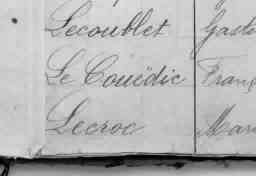 Lecoublet Gasto
Le Couëdic Franç
Lecroc Mari